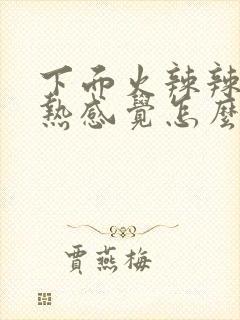 下面火辣辣
熱感覺怎麼
賈燕梅